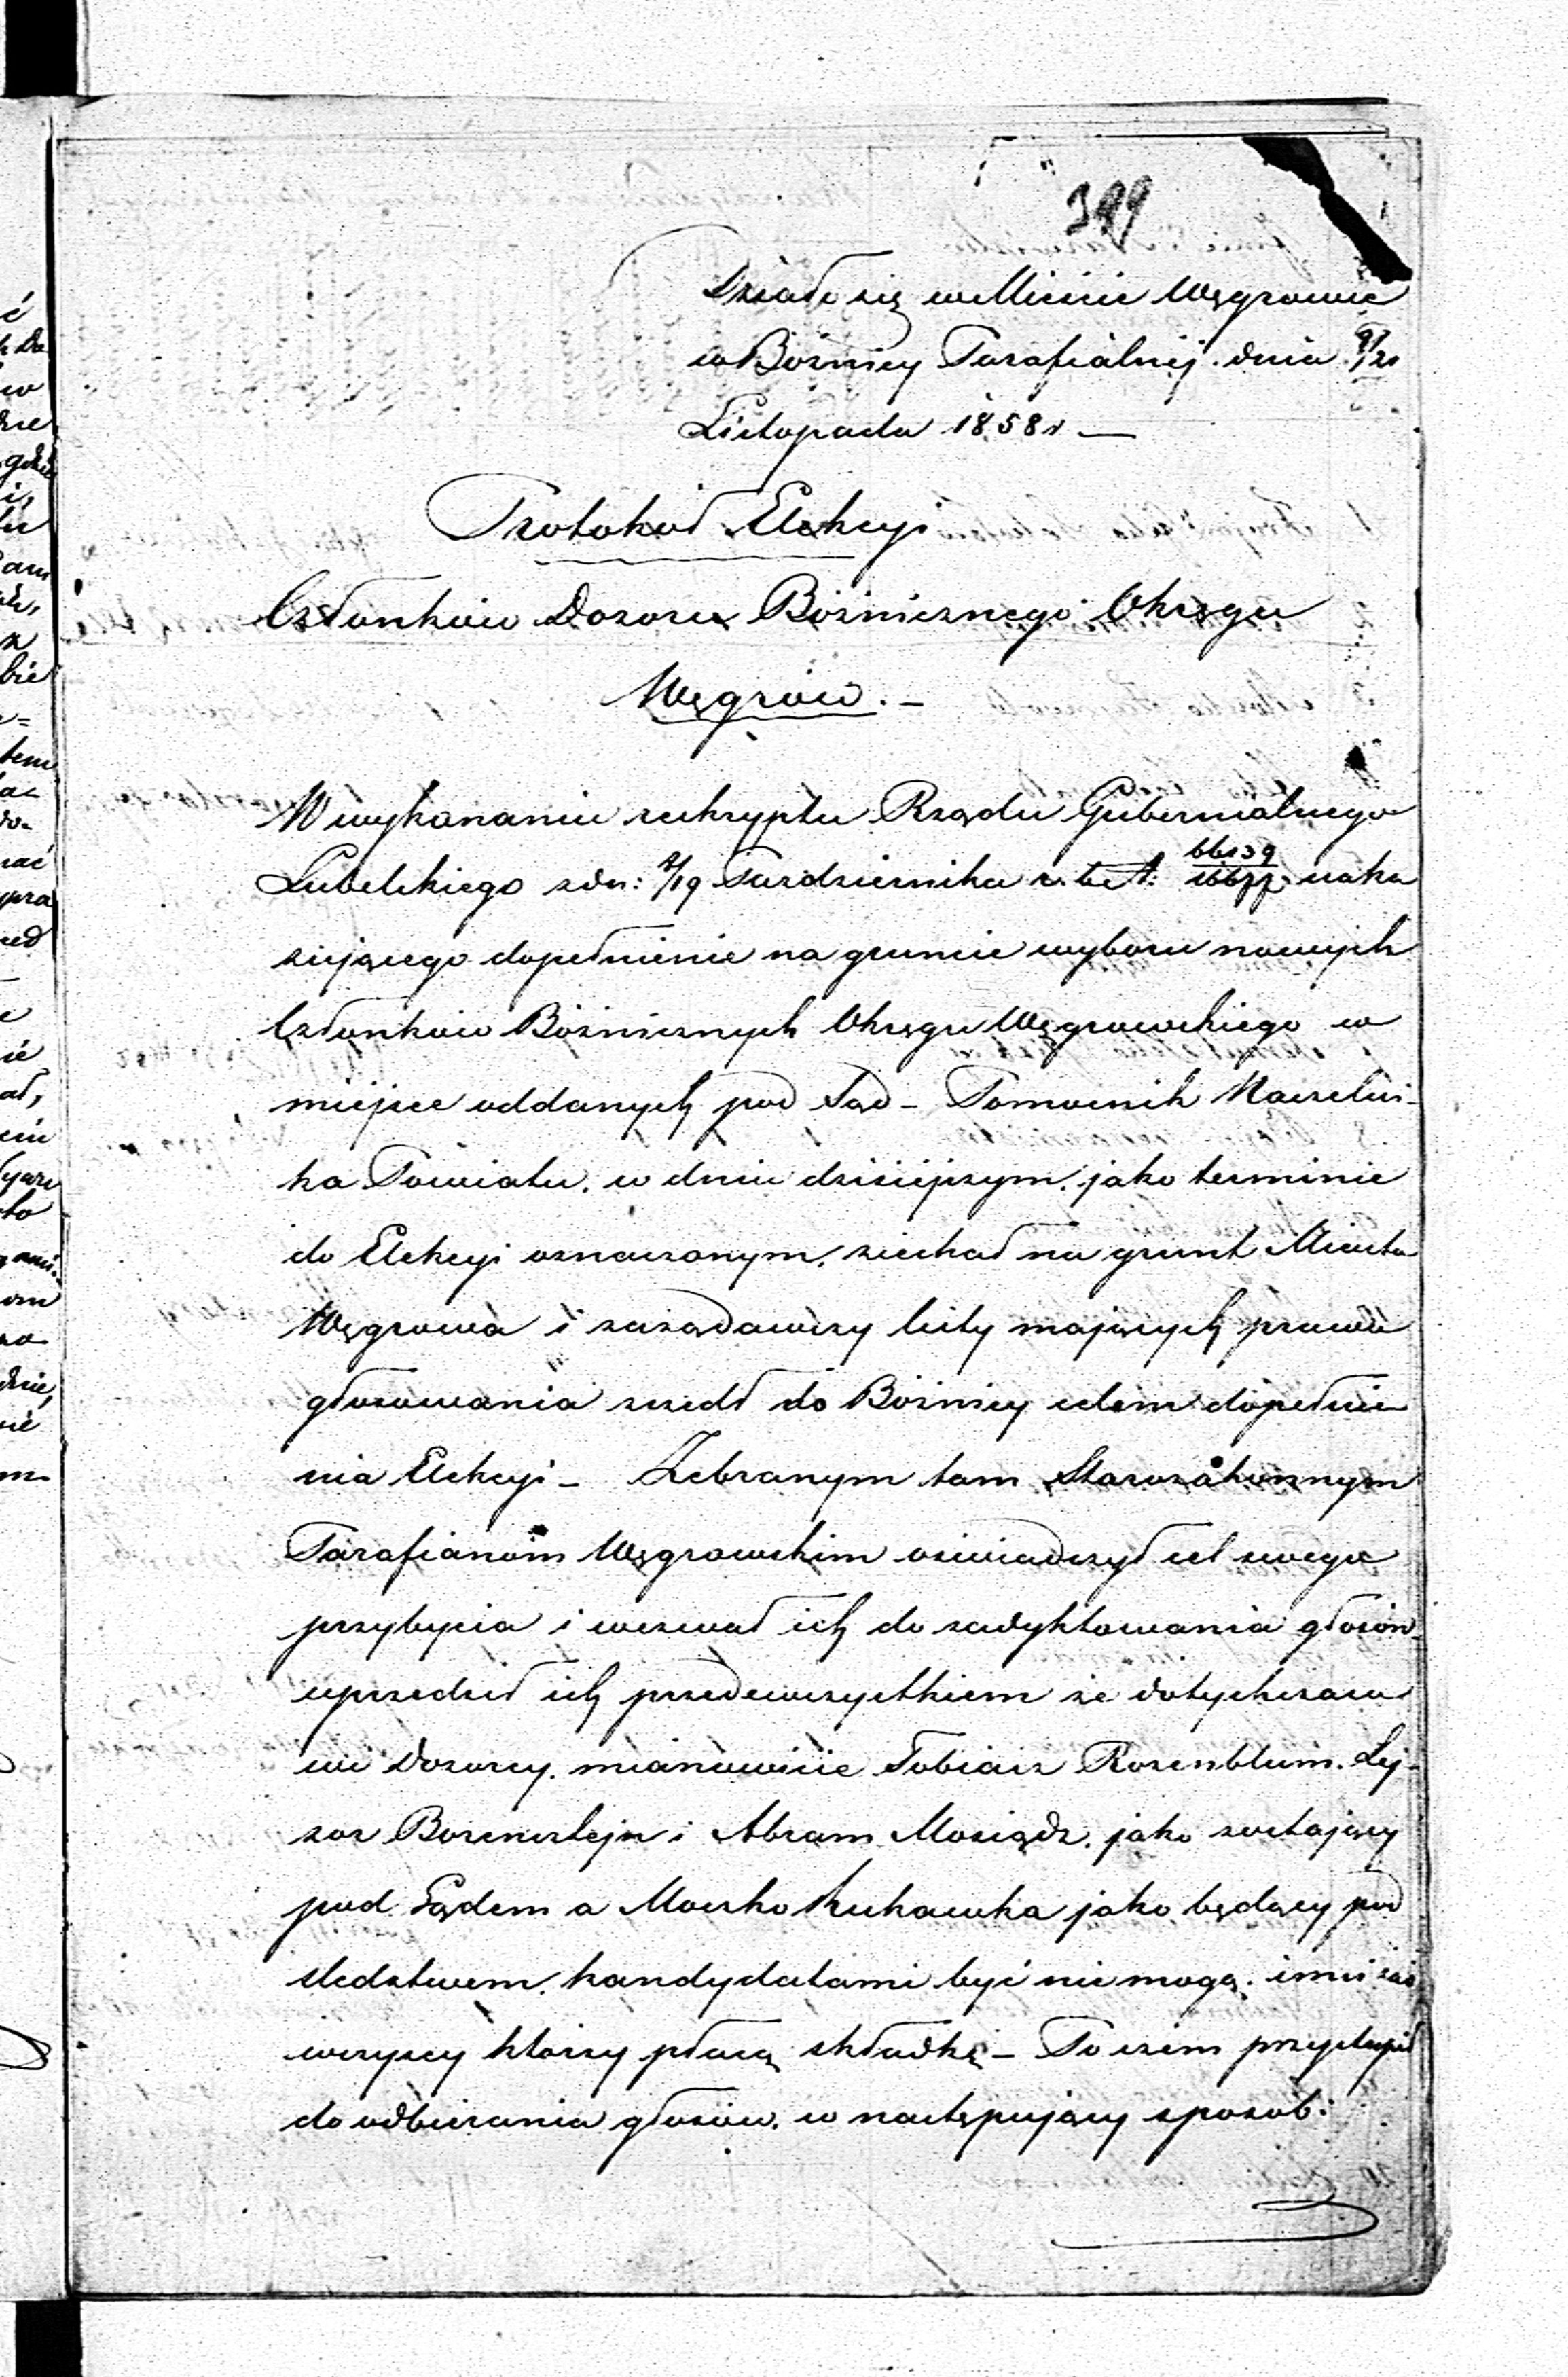 399
Działo się w Mieście Węgrowie
w Bóżnicy Parafialnéj dnia 9/21
Listopada 1858 r —
Protokuł Elekcyi
Członków Dozoru Bóżnicznego Okręgu
Węgrów. –
W wykonaniu reskryptu Rządu Gubernialnego
Lubelskiego z dn: 7/19 Października r. b. naka
zującego dopełnienie na gruncie wyboru nowych
Członków Bóżnicznych Okręgu Węgrowskiego w
miejsce oddanych pod Sąd – Pomocnik Naczelni-
ka Powiatu. w dniu dzisiéjszym. jako terminie
do Elekcyi oznaczonym. ziechał na grunt Miasta
Węgrowa i zażądawszy listy mających prawo
głosowania zszedł do Bóżnicy celem dopełnie
nia Elekcyi – Zebranym tam Starozakonnym
Parafianom Węgrowskim oświadczył cel swego
przybycia i wezwał ich do zadyktowania głosów
uprzedził ich przedewszystkiem że dotychczaso
wi Dozorcy. mianowicie Tobiasz Rosenblum. Lej-
zor Borensztejn i Abram Mosiądz. jako zostający
pod Sądem a Moszko Kukawka jako będący pod
śledztwem. kandydatami być nie mogą. inni zaś
wszyscy którzy płacą składkę – Poczem przystąpił
do odbierania głosów. w następujący sposób: